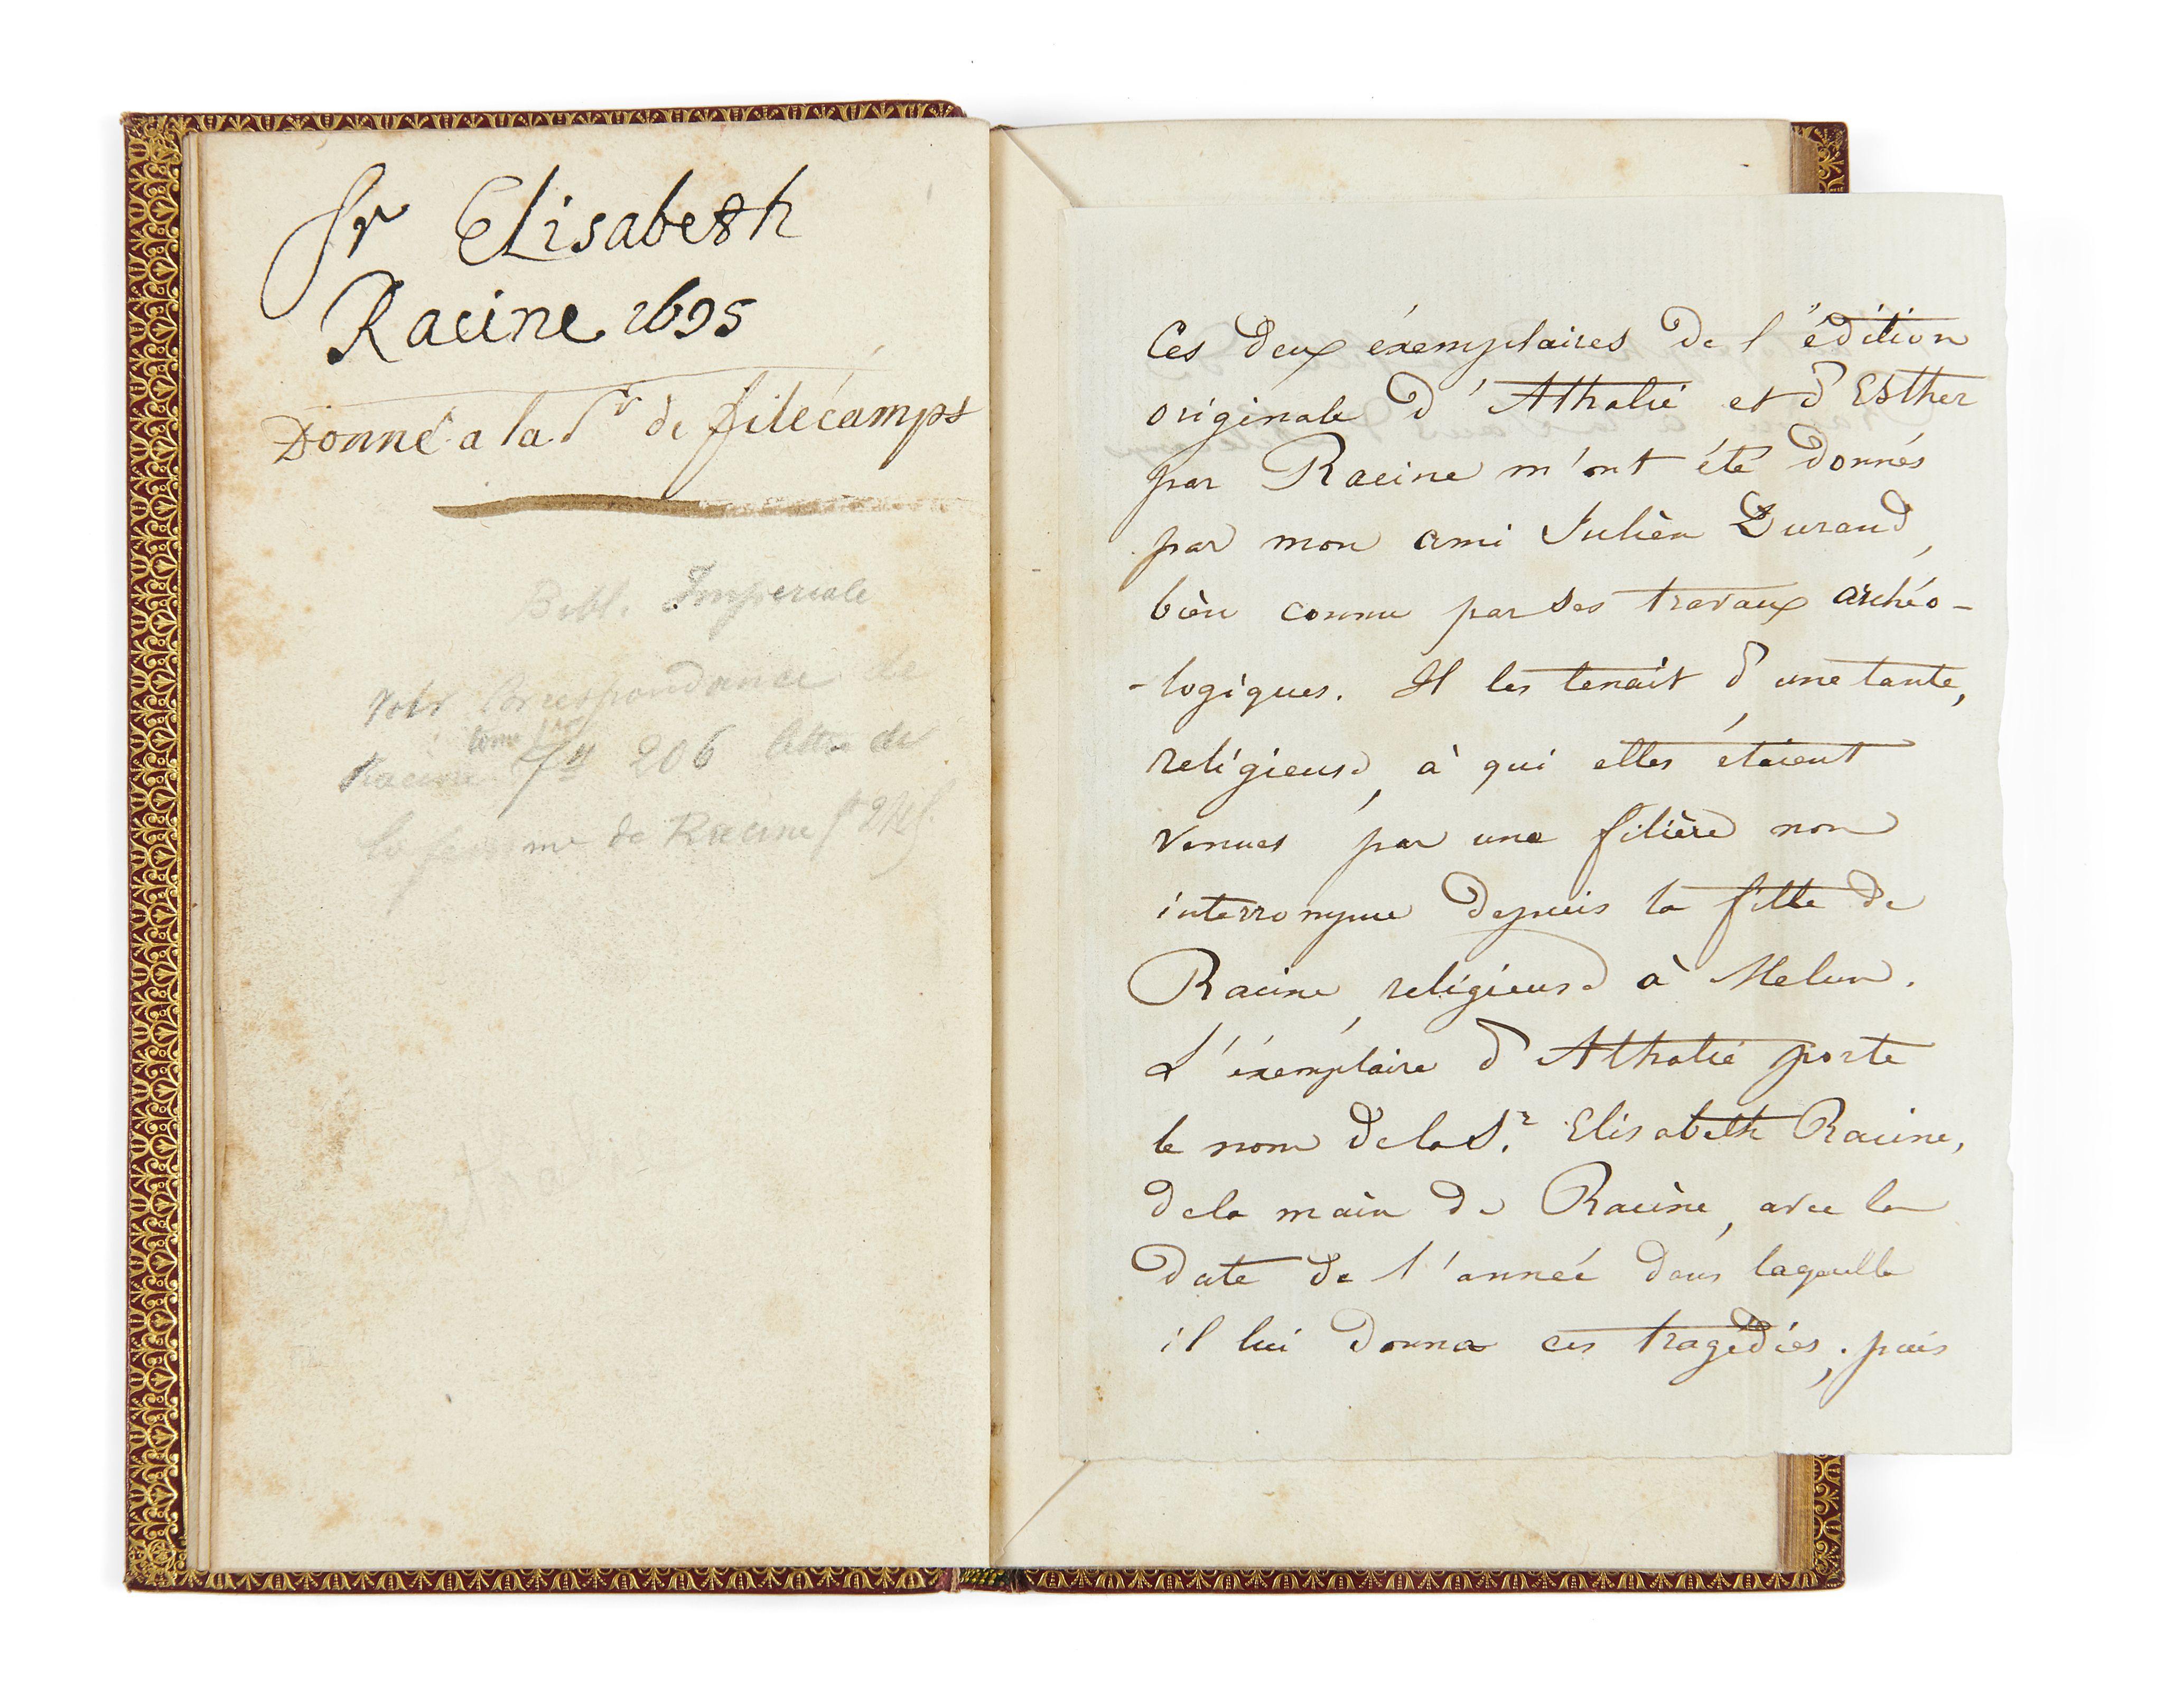 Sr Elisabeth
Racine 1695
Donné a la Sr de filécamps
Bibl. Imperiale
voir Correspondance de
Racine 206 lettre de
la femme de Racine
Ces deux éxemplaires de l'édition
originale d'Athalie et d'Esther
par Racine m'ont été donnés
par mon ami Julien Durand,
bien connu par ses travaux archéo-
-logiques. Il les tenait d'une tante,
religieuse, à qui elles étaient
venues par une filière non
interrompue depuis la fille de
Racine, religieuse à Melun.
L'éxemplaire d'Athalie porte
le nom de la Sr. Elisabeth Racine,
de la main de Racine, avec la
date de l'année dans laquelle
il lui donna ces tragédies; puis